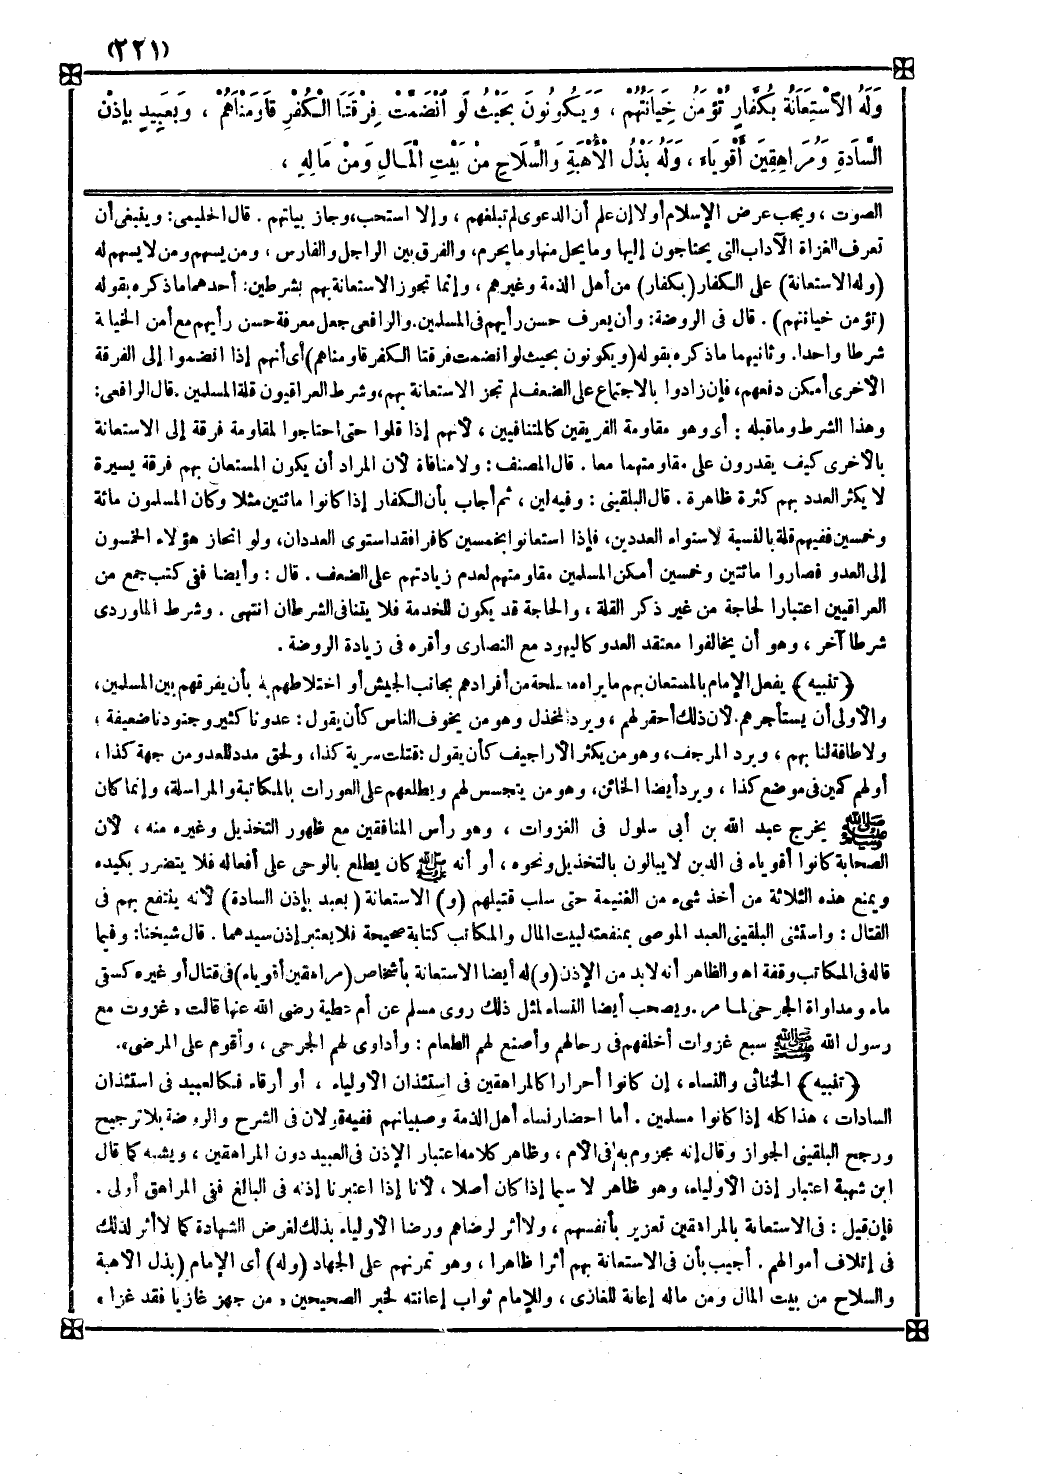 (٢٢١)
وَلَهُ الِاسْتِعَانَةُ بِكُفَّارٍ تُؤْمَنُ خِيَانَتُهُمْ ، وَيَكُونُونَ بِحَيْثُ لَوِ انْضَمَّتْ فِرْقَتَا الْكُفْرِ قَاوَمْنَاهُمْ ، وَبِعَبِيدٍ بِإِذْنِ
السَّادَةِ وَمُرَاهِقِينَ أَقْوِيَاءَ ، وَلَهُ بَذْلُ الْأُهْبَةِ وَالسِّلَاحِ مِنْ بَيْتِ الْمَالِ وَمِنْ مَالِهِ ،
الصوت ، ويجب عرض الإسلام أولا إن علم أن الدعوى لم تبلغهم ، وإلا استحب ، وجاز بياتهم . قال الحليمى : وينبغى أن
تعرف الغزاة الآداب التى يحتاجون إليها وما يحل منها وما يحرم ، والفرق بين الراجل والفارس ، ومن يسهم ومن لا يسهم له
(وله الاستعانة) على الكفار (بكفار) من أهل الذمة وغيرهم ، وإنما تجوز الاستعانة بهم بشرطين : أحدهما ما ذكره بقوله
(تؤمن خيانتهم) . قال فى الروضة : وأن يعرف حسن رأيهم فى المسلمين . والرافعى جعل معرفة حسن رأيهم مع أمن الخيانة
شرطا واحدا . وثانيهما ما ذكره بقوله (ويكونون بحيث لو انضمت فرقتا الكفر قاومناهم) أى أنهم إذا انضموا إلى الفرقة
الأخرى أمكن دفعهم ، فإن زادوا بالاجتماع على الضعف لم تجز الاستعانة بهم ، وشرط العراقيون قلة المسلمين . قال الرافعى :
وهذا الشرط وما قبله : أى وهو مقاومة الفريقين كالمتنافيين ، لأنهم إذا قلوا حتى احتاجوا لمقاومة فرقة إلى الاستعانة
بالأخرى كيف يقدرون على مقاومتهما معا . قال المصنف : ولا منافاة لأن المراد أن يكون المستعان بهم فرقة يسيرة
لا يكثر العدد بهم كثرة ظاهرة . قال البلقينى : وفيه لين ، ثم أجاب بأن الكفار إذا كانوا مائتين مثلا وكان المسلمون مائة
وخمسين ففيهم قلة بالنسبة لاستواء العددين ، فإذا استعانوا بخمسين كافرا فقد استوى العددان ، ولو انحاز هؤلاء الخمسون
إلى العدو فصاروا مائتين وخمسين أمكن المسلمين مقاومتهم لعدم زيادتهم على الضعف . قال : وأيضا ففى كتب جمع من
العراقيين اعتبارا لحاجة من غير ذكر القلة ، والحاجة قد يكون للخدمة فلا يتنافى الشرطان انتهى . وشرط الماوردى
شرطا آخر ، وهو أن يخالفوا معتقد العدو كاليهود مع النصارى وأقره فى زيادة الروضة .
(تنبيه) يفعل الإمام بالمستعان بهم ما يراه مصلحة من أفرادهم بجانب الجيش أو اختلاطهم به بأن يفرقهم بين المسلمين ،
والأولى أن يستأجرهم لأن ذلك أحقر لهم ، ويرد المخذل وهو من يخوف الناس كأن يقول : عدونا كثير وجنودنا ضعيفة ،
ولا طاقة لنا بهم ، ويرد المرجف ، وهو من يكثر الأراجيف كأن يقول : قتلت سرية كذا ، ولحق مدد للعدو من جهة كذا ،
أو لهم كمين فى موضع كذا ، ويرد أيضا الخائن ، وهو من يتجسس لهم ويطلعهم على العورات بالمكاتبة والمراسلة ، وإنما كان
ﷺ يخرج عبد الله بن أبى سلول فى الغزوات ، وهو رأس المنافقين مع ظهور التخذيل وغيره منه ، لأن
الصحابة كانوا أقوياء فى الدين لا يبالون بالتخذيل ونحوه ، أو أنه ﷺ كان يطلع بالوحى على أفعاله فلا يتضرر بكيده
ويمنع هذه الثلاثة من أخذ شىء من الغنيمة حتى سلب قتيلهم (و) الاستعانة (بعبد بإذن السادة) لأنه ينتفع بهم فى
القتال : واستثنى البلقينى العبد الموصى بمنفعته لبيت المال والمكاتب كتابة صحيحة فلا يعتبر إذن سيدهما . قال شيخنا : وفيما
قاله فى المكاتب وقفة اه والظاهر أنه لابد من الإذن (و) له أيضا الاستعانة بأشخاص (مراهقين أقوياء) فى قتال أو غيره كسقى
ماء ومداواة الجرحى لما مر . ويصحب أيضا النساء لمثل ذلك روى مسلم عن أم عطية رضى الله عنها قالت « غزوت مع
رسول الله ﷺ سبع غزوات أخلفهم فى رحالهم وأصنع لهم الطعام : وأداوى لهم الجرحى ، وأقوم على المرضى » .
(تنبيه) الخناثى والنساء ، إن كانوا أحرارا كالمراهقين فى استئذان الأولياء ، أو أرقاء فكالعبيد فى استئذان
السادات ، هذا كله إذا كانوا مسلمين . أما احضار نساء أهل الذمة وصبيانهم ففيه قولان فى الشرح والروضة بلا ترجيح
ورجح البلقينى الجواز وقال إنه مجزوم به فى الأم ، وظاهر كلامه اعتبار الإذن فى العبيد دون المراهقين ، ويشبه كما قال
ابن شهبة اعتبار إذن الأولياء ، وهو ظاهر لا سيما إذا كان أصلا ، لأنا إذا اعتبرنا إذنه فى البالغ ففى المراهق أولى .
فإن قيل : فى الاستعانة بالمراهقين تعزير بأنفسهم ، ولا أثر لرضاهم ورضا الأولياء بذلك لغرض الشهادة كما لا أثر لذلك
فى إتلاف أموالهم . أجيب بأن فى الاستعانة بهم أثرا ظاهرا ، وهو تمرنهم على الجهاد (وله) أى الإمام (بذل الأهبة
والسلاح من بيت المال ومن ماله إعانة للغازى ، وللإمام ثواب إعانته لخبر الصحيحين « من جهز غازيا فقد غزا »